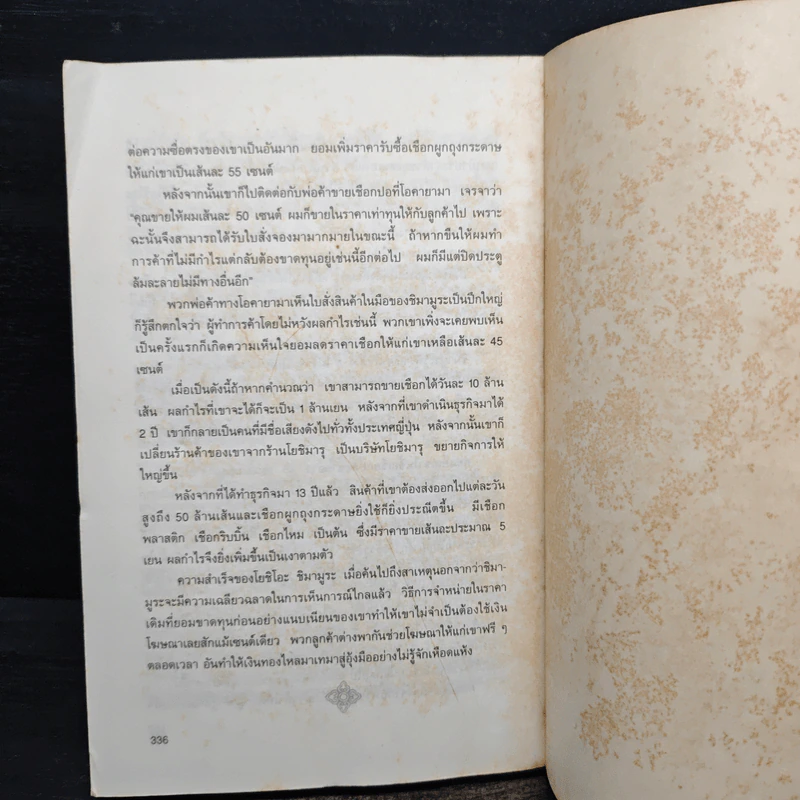 ต่อความซื่อตรงของเขาเป็นอันมาก ยอมเพิ่มราคารับซื้อเชือกผูกถุงกระดาษ
ให้แก่เขาเป็นเส้นละ 55 เซนต์
หลังจากนั้นเขาก็ไปติดต่อกับพ่อค้าขายเชือกปอที่โอคายามา เจรจาว่า
"คุณขายให้ผมเส้นละ 50 เซนต์ ผมก็ขายในราคาเท่าทุนให้กับลูกค้าไป เพราะ
ฉะนั้นจึงสามารถได้รับใบสั่งจองมามากมายในขณะนี้ ถ้าหากขืนให้ผมทำ
การค้าที่ไม่มีกำไรแต่กลับต้องขาดทุนอยู่เช่นนี้อีกต่อไป ผมก็มีแต่ปิดประตู
ล้มละลายไม่มีทางอื่นอีก"
พวกพ่อค้าทางโอคายามาเห็นใบสั่งสินค้าในมือของชิมามูระเป็นปึกใหญ่
ก็รู้สึกตกใจว่า ผู้ทำการค้าโดยไม่หวังผลกำไรเช่นนี้ พวกเขาเพิ่งจะเคยพบเห็น
เป็นครั้งแรกก็เกิดความเห็นใจยอมลดราคาเชือกให้แก่เขาเหลือเส้นละ 45
เซนต์
เมื่อเป็นดังนี้ถ้าหากคำนวณว่า เขาสามารถขายเชือกได้วันละ 10 ล้าน
เส้น ผลกำไรที่เขาจะได้ก็จะเป็น 1 ล้านเยน หลังจากที่เขาดำเนินธุรกิจมาได้
2 ปี เขาก็กลายเป็นคนที่มีชื่อเสียงดังไปทั่วทั้งประเทศญี่ปุ่น หลังจากนั้นเขาก็
เปลี่ยนร้านค้าของเขาจากร้านโยชิมารุ เป็นบริษัทโยชิมารุ ขยายกิจการให้
ใหญ่ขึ้น
หลังจากที่ได้ทำธุรกิจมา 13 ปีแล้ว สินค้าที่เขาต้องส่งออกไปแต่ละวัน
สูงถึง 50 ล้านเส้นและเชือกผูกถุงกระดาษยิ่งใช้ก็ยิ่งประณีตขึ้น มีเชือก
พลาสติก เชือกริบบิ้น เชือกไหม เป็นต้น ซึ่งมีราคาขายเส้นละประมาณ 5
เยน ผลกำไรจึงยิ่งเพิ่มขึ้นเป็นเงาตามตัว
ความสำเร็จของโยชิโอะ ชิมามูระ เมื่อค้นไปถึงสาเหตุนอกจากว่าชิมา-
มูระจะมีความเฉลียวฉลาดในการเห็นการณ์ไกลแล้ว วิธีการจำหน่ายในราคา
เดิมที่ยอมขาดทุนก่อนอย่างแนบเนียนของเขาทำให้เขาไม่จำเป็นต้องใช้เงิน
โฆษณาเลยสักแม้เซนต์เดียว พวกลูกค้าต่างพากันช่วยโฆษณาให้แก่เขาฟรี ๆ
ตลอดเวลา อันทำให้เงินทองไหลมาเทมาสู่อุ้งมืออย่างไม่รู้จักเหือดแห้ง
336